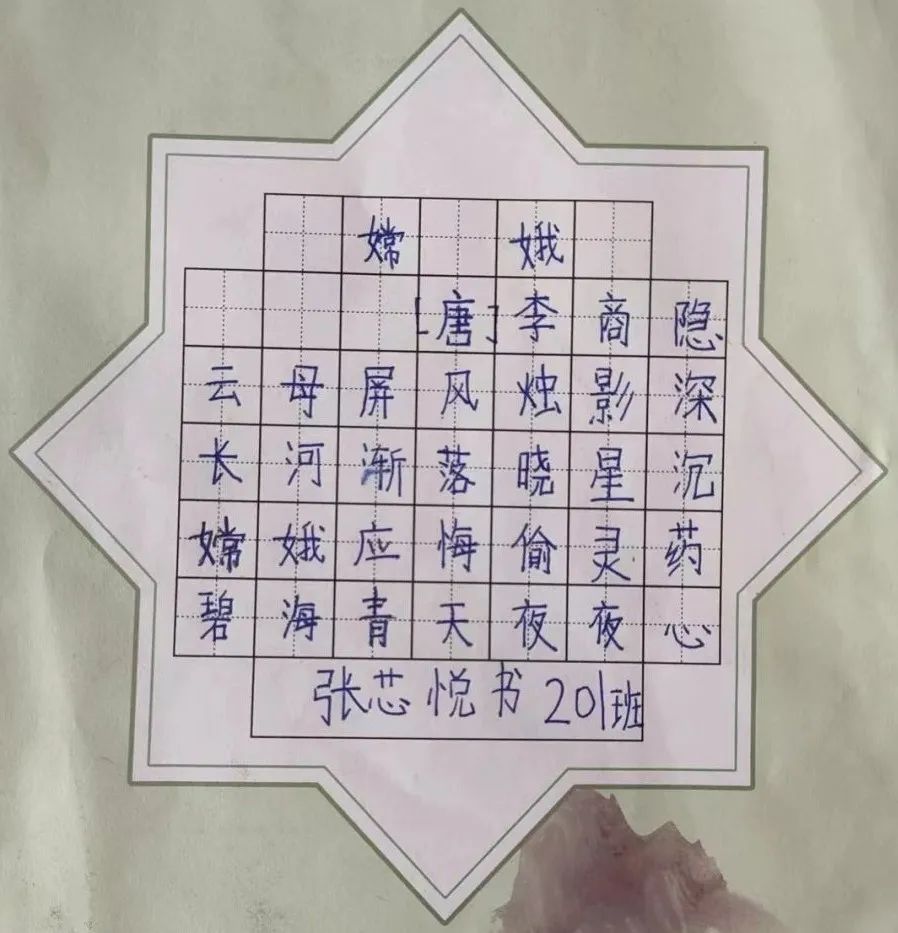 嫦娥
[唐]李商隐
云母屏风烛影深
长河渐落晓星沉
嫦娥应悔偷灵药
碧海青天夜夜心
张芯悦书201班